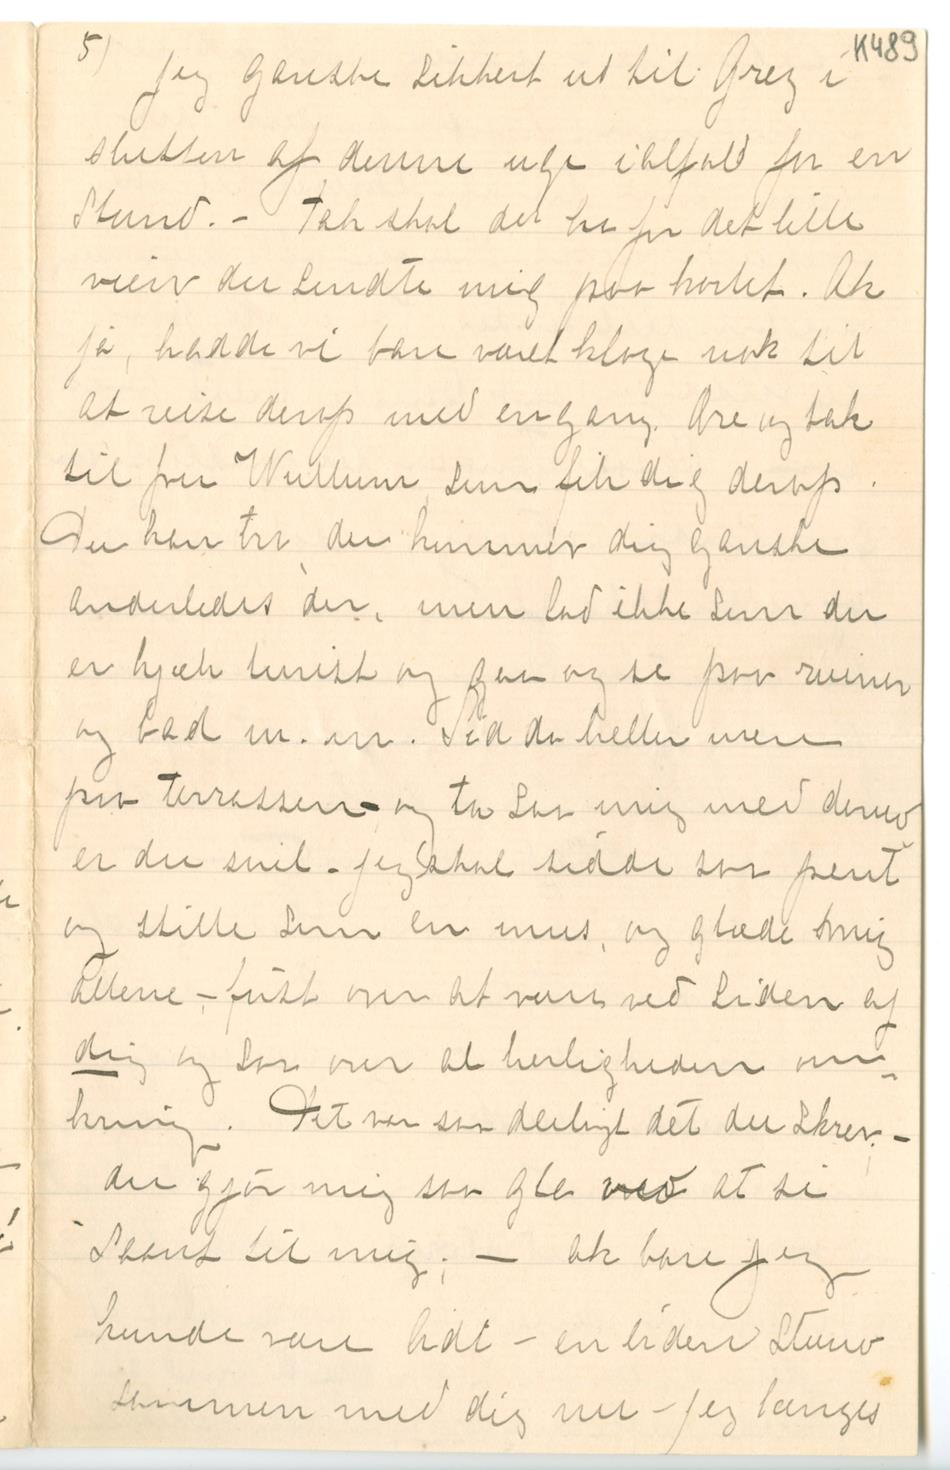 5)
K489
Jeg ganske sikkert ud til Grez i
slutten af denne uge ialfald for en
Stund. – Tak skal du ha for det lille
vers du sendte mig paa kortet. Ak
ja, hadde vi bare været kloge nok til
at reise derop med engang. Ære og tak
til fru Wullum, som fik dig derop.
Du kan tro, du kommer dig ganske
anderledes der, men lad ikke som du
er kjæk turist og gaa og se paa ruiner
og bad m. m. Sid da heller mere
paa terrassen – og ta saa mig med derud
er du snil – jeg skal sidde saa pent
og stille som en mus, og glæde mig
allene – først over at være ved Siden af
dig og saa over al herligheden om-
kring. Det var saa deiligt det du Skrev, –
du gjør mig saa gla ved at si
Saant til mig; – ak bare jeg
kunde være lidt – en liden Stund
sammen med dig nu – Jeg længes